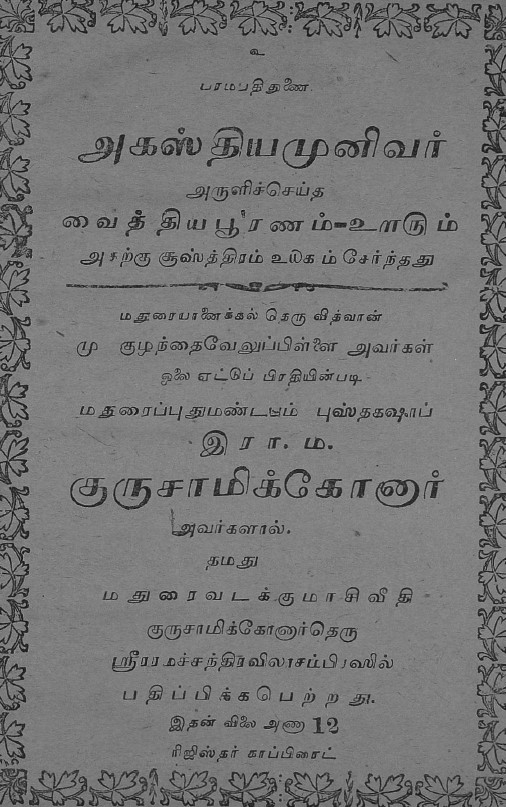 உ
பரமபதிதுணை.
அகஸ்தியமுனிவர்
அருளிச்செய்த
வைத்தியபூரணம்-உளரும்
அதற்கு சூஸ்த்திரம் உலகம் சேர்ந்தது
மதுரையானைக்கல் தெரு வித்வான்
மு குழந்தைவேலுப்பிள்ளை அவர்கள்
ஒலை ஏட்டுப் பிரதியின்படி
மதுரைப்புதுமண்டபம் புஸ்தகஷாப்
இரா. ம.
குருசாமிக்கோனார்
அவர்களால்.
தமது
மதுரைவடக்குமாசிவீதி
குருசாமிக்கோனார்தெரு
ஸ்ரீராமச்சந்திரவிலாசம்பிரஸில்
பதிப்பிக்கபெற்றது.
இதன் விலை அணா 12
ரிஜிஸ்தர் காப்பிரைட்